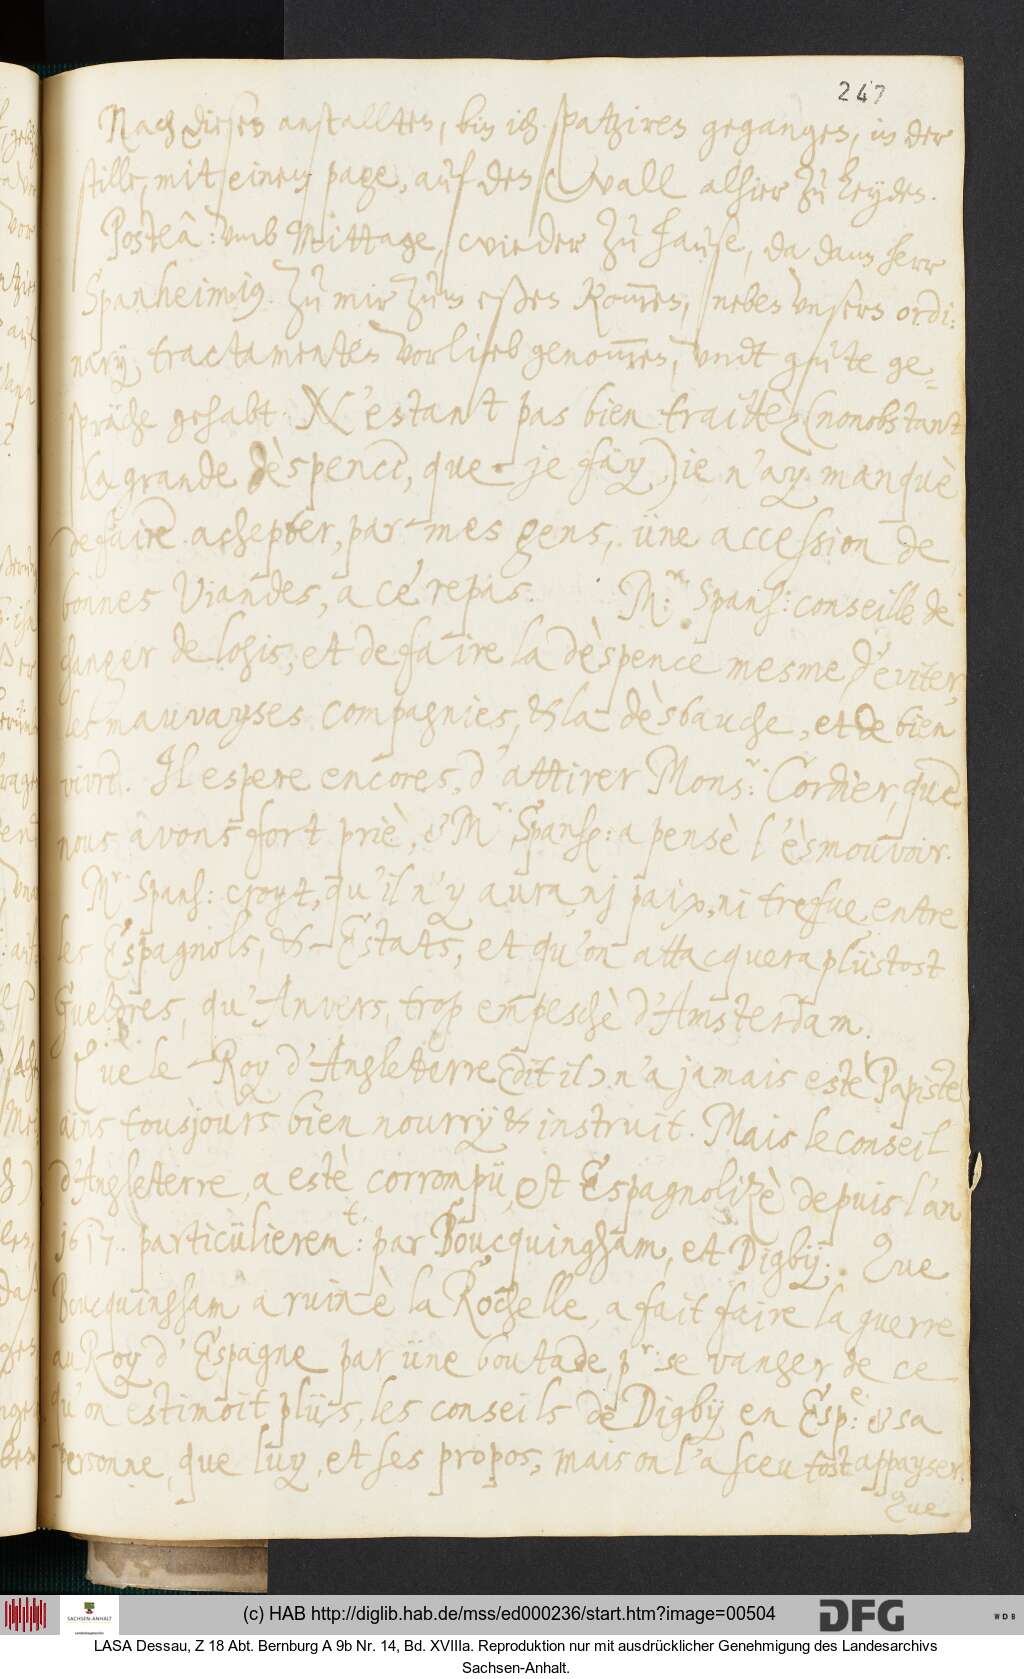 247
Nach diesen anstalltten, bin ich spatziren gegangen, in der
stille, mit einem page, auf den Wall alhier zu Leyden.
Posteâ: umb Mittage, wieder zu hause, da dann herr
Spanheimius zu mir zum eßen kommen, neben unsern ordi:
nary tractamenten vorlieb genommen, undt gute ge-
spräche gehabt. N'estant pas bien traittèz (nonobstant
la grande dèspence, que je fay) ie n'ay manquè
de faire achepter, par mes gens, üne accession de
bonnes viandes, a cé repas. Mr: Spanh: conseille de
changer de logis, et de faire la dèspence mesme d'eviter,
les mauvayses compagnies, & la dèsbauche, et de bien
vivre. Il espere encores, d'attirer Monsr: Cordier, que
nous avons fort priè, & Mr Spanh: a pensè l'èsmouvoir.
Mr. Spanh: croyt, qu'il n'y aura, nj paix, ni trefue entre
les Espagnols, & Estats, et qu'on attacquera plüstost
Gueldres, qu'Anvers, trop empeschè d'Amsterdam.
Que le Roy d'Angleterre (dit il) n'a jamais estè Papiste
ains tousjours bien nourrÿ & instruit. Mais le conseil
d'Angleterre, a estè corrompü, est Espagnolizè depuis l'an
1617. particülieremt: par Boucquingham, et Digbÿ. Que
Boucquingham a ruinè la Rochelle, a fait faire la guerre
au Roy d'Espagne par üne boutade, pr: se vanger de ce
qu'on estimoit plüs, les conseils de Digbÿ en Espe: & sa
personne, que luy, et ses propos, mais on l'a sceu tost appayser.
Que
(c) HAB http://diglib.hab.de/mss/ed000236/start.htm?image=00504
DFG
WDB
SACHSEN-ANHALT
LASA Dessau, Z 18 Abt. Bernburg A 9b Nr. 14, Bd. XVIIIa. Reproduktion nur mit ausdrücklicher Genehmigung des Landesarchivs
Sachsen-Anhalt.